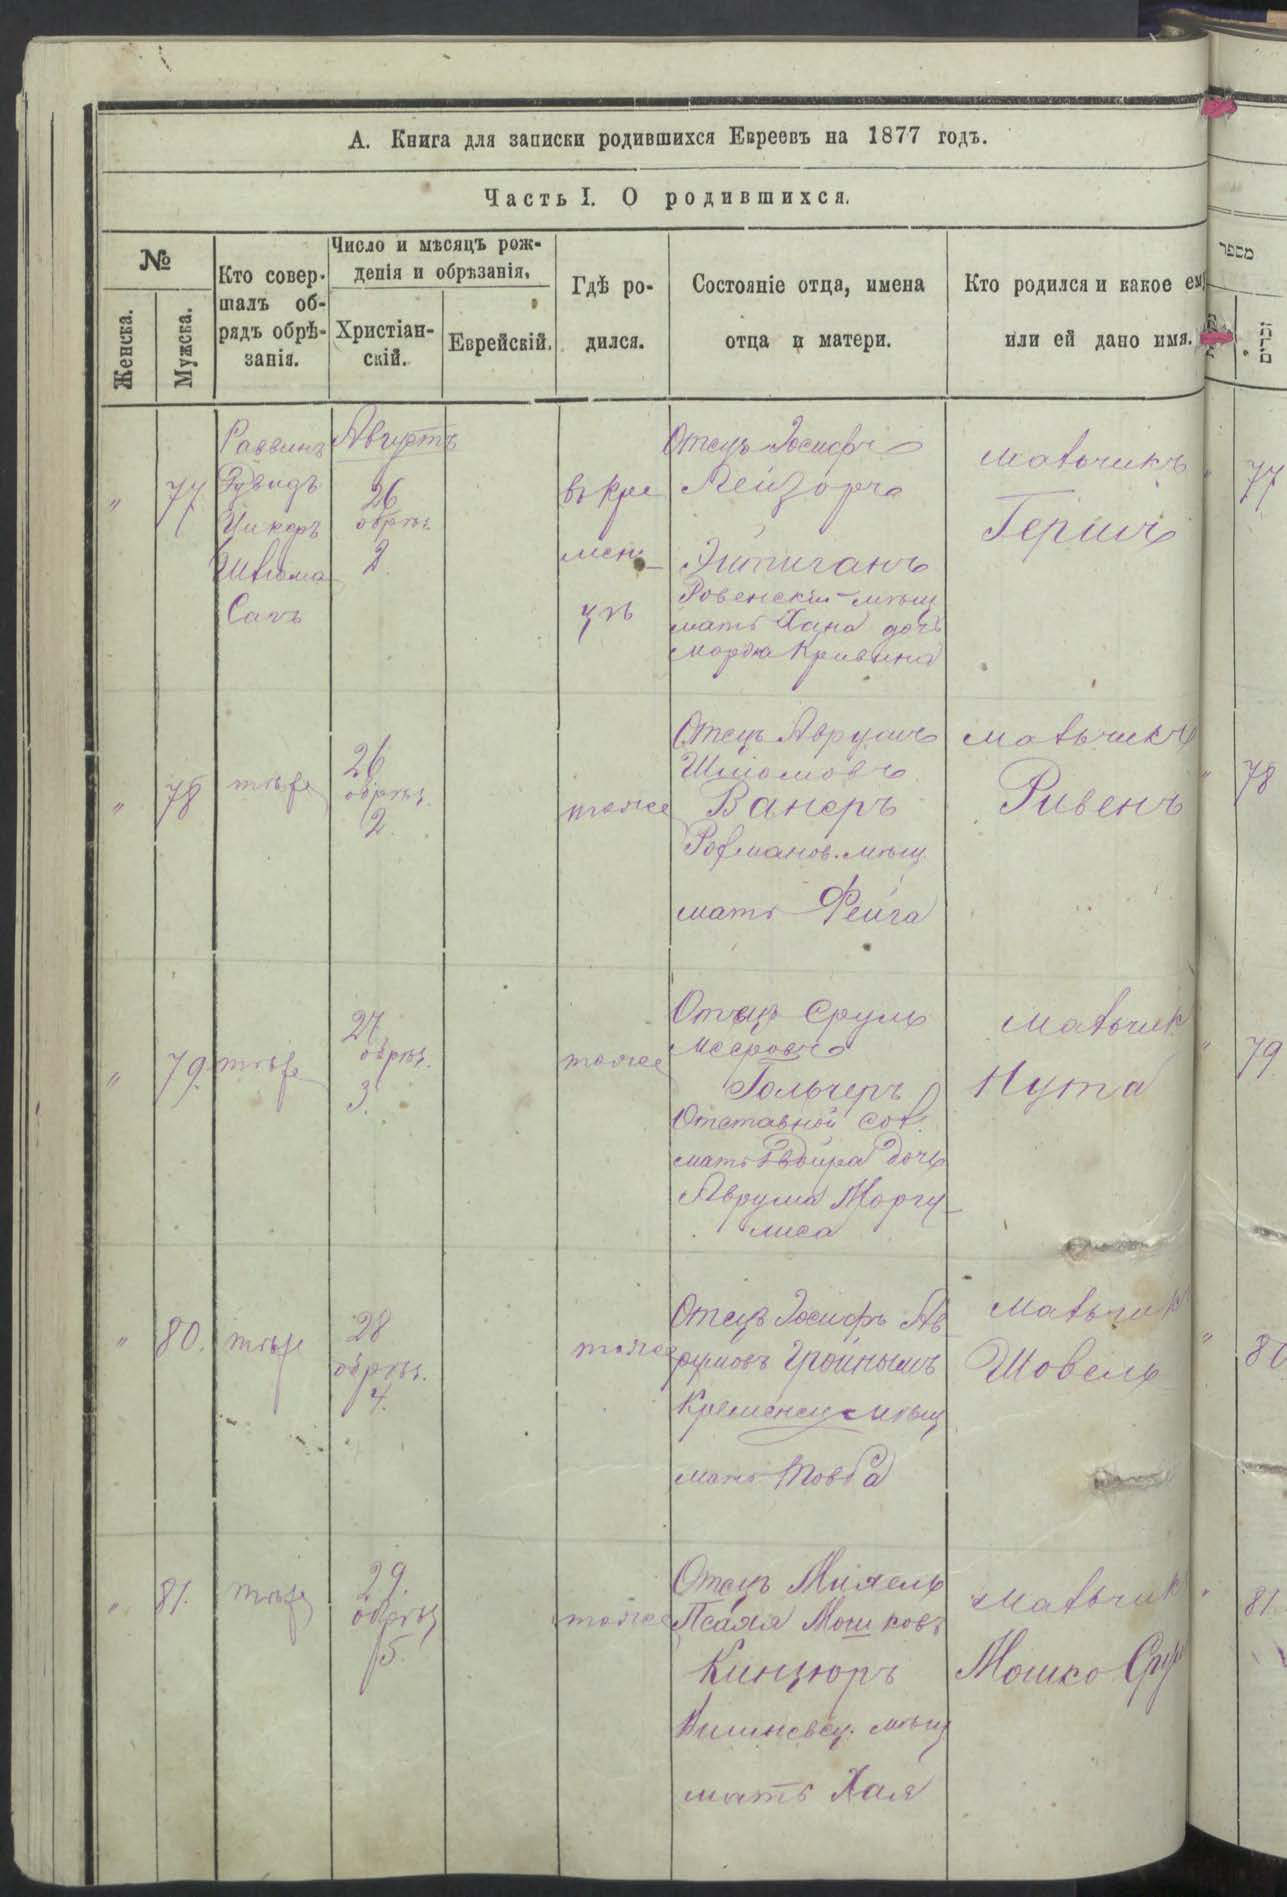 А. Книга для записки родившихся Евреевъ на 1877 годъ.
Часть I. О родившихся.
№
Женска.
Мужска.
Кто совер-
шалъ об-
рядъ обрѣ-
занія.
Число и мѣсяцъ рож-
денія и обрѣзанія.
Христіан-
скій.
Еврейскій.
Гдѣ ро-
дился.
Состояніе отца, имена
отца и матери.
Кто родился и какое ему
или ей дано имя.
מספר
זכרים
"
77
Раввинъ
Сапъ
Августъ
26
обрѣз.
2
въ Кре
мен
цѣ
Отецъ Іосифъ
Лейзоръ
Ровенскій мѣщ
мать Хана дочь
Мордка Кривина
Мальчикъ
Гершъ
" 77
"
78
тѣже
26
обрѣз.
2
тоже
Отецъ Аврумъ
Шліомовъ
Ванеръ
мѣщ.
мать Фейга
Мальчикъ
Ривенъ
" 78
"
79.
тѣже
27
обрѣз.
3.
тоже
Отецъ Сруль
Мееровъ
Гольчеръ
Отставной сол.
мать Двойра дочь
Аврума Моргу-
лиса
Мальчик
Нута
" 79
"
80.
тѣже
28
обрѣз.
4.
тоже
Отецъ Іосифъ Ав
румовъ Гройнымъ
Кременец мѣщ
мать Товба
Мальчик
Шовель
" 80
"
81.
тѣже
29.
обрѣз
5.
тоже
Отецъ
Мошковъ
Кинцюръ
мѣщ
мать Хая
Мальчик
Мошко Сру
" 81